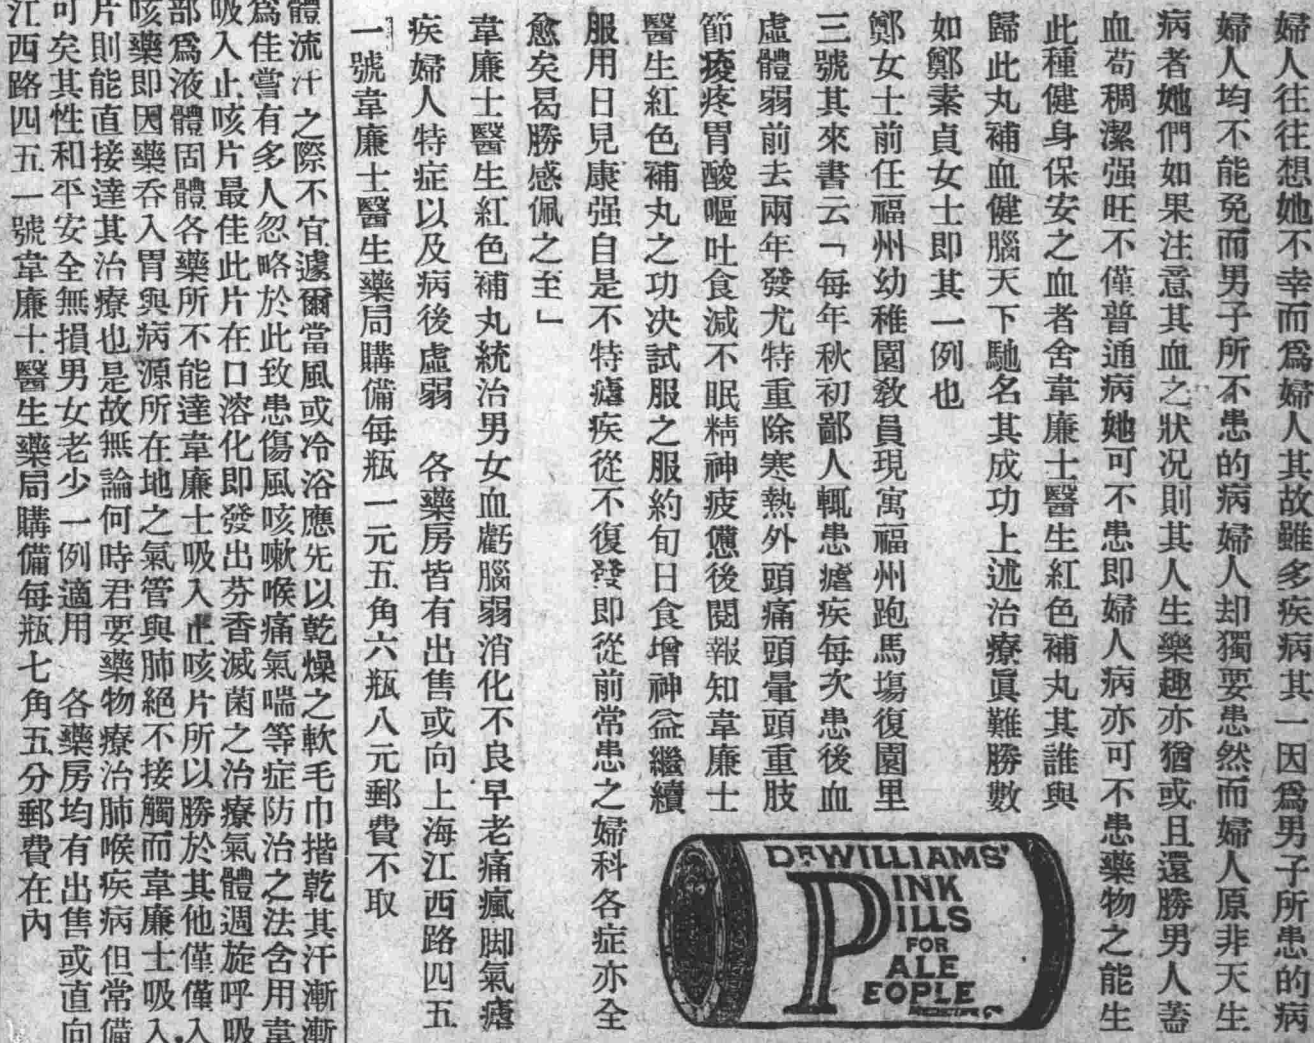 婦人往往想她不幸而爲婦人其故雖多疾病其一因爲男子所患的病
婦人均不能免而男子所不患的病婦人却獨要患然而婦人原非天生
病者她們如果注意其血之狀况則其人生樂趣亦猶或且還勝男人蓋
血苟稠潔强旺不僅普通病她可不患即婦人病亦可不患藥物之能生
此種健身保安之血者舍韋廉士醫生紅色補丸其誰與
歸此丸補血健腦天下馳名其成功上述治療眞難勝數
如鄭素貞女士即其一例也
鄭女士前任福州幼稚園敎員現寓福州跑馬塲復園里
三號其來書云「每年秋初鄙人輒患瘧疾每次患後血
虛體弱前去兩年發尤特重除寒熱外頭痛頭暈頭重肢
節痠疼胃酸嘔吐食減不眠精神疲憊後閱報知韋廉士
醫生紅色補丸之功决試服之服約旬日食增神益繼續
服用日見康强自是不特瘧疾從不復發即從前常患之婦科各症亦全
愈矣曷勝感佩之至」
韋廉士醫生紅色補丸統治男女血虧腦弱消化不良早老痛瘋脚氣瘧
疾婦人特症以及病後虛弱 各藥房皆有出售或向上海江西路四五
一號韋廉士醫生藥局購備每瓶一元五角六瓶八元郵費不取
DR WILLIAMS'
PINK
PILLS
FOR
PALE
PEOPLE
體流汗之際不宜遽爾當風或冷浴應先以乾燥之軟毛巾揩乾其汗漸漸
爲佳嘗有多人忽略於此致患傷風咳嗽喉痛氣喘等症防治之法含用韋
吸入止咳片最佳此片在口溶化即發出芬香滅菌之治療氣體週旋呼吸
部爲液體固體各藥所不能達韋廉士吸入止咳片所以勝於其他僅僅入
咳藥即因藥吞入胃與病源所在地之氣管與肺絕不接觸而韋廉士吸入
片則能直接達其治療也是故無論何時君要藥物療治肺喉疾病但常備
可矣其性和平安全無損男女老少一例適用 各藥房均有出售或直向
江西路四五一號韋廉士醫生藥局購備每瓶七角五分郵費在內